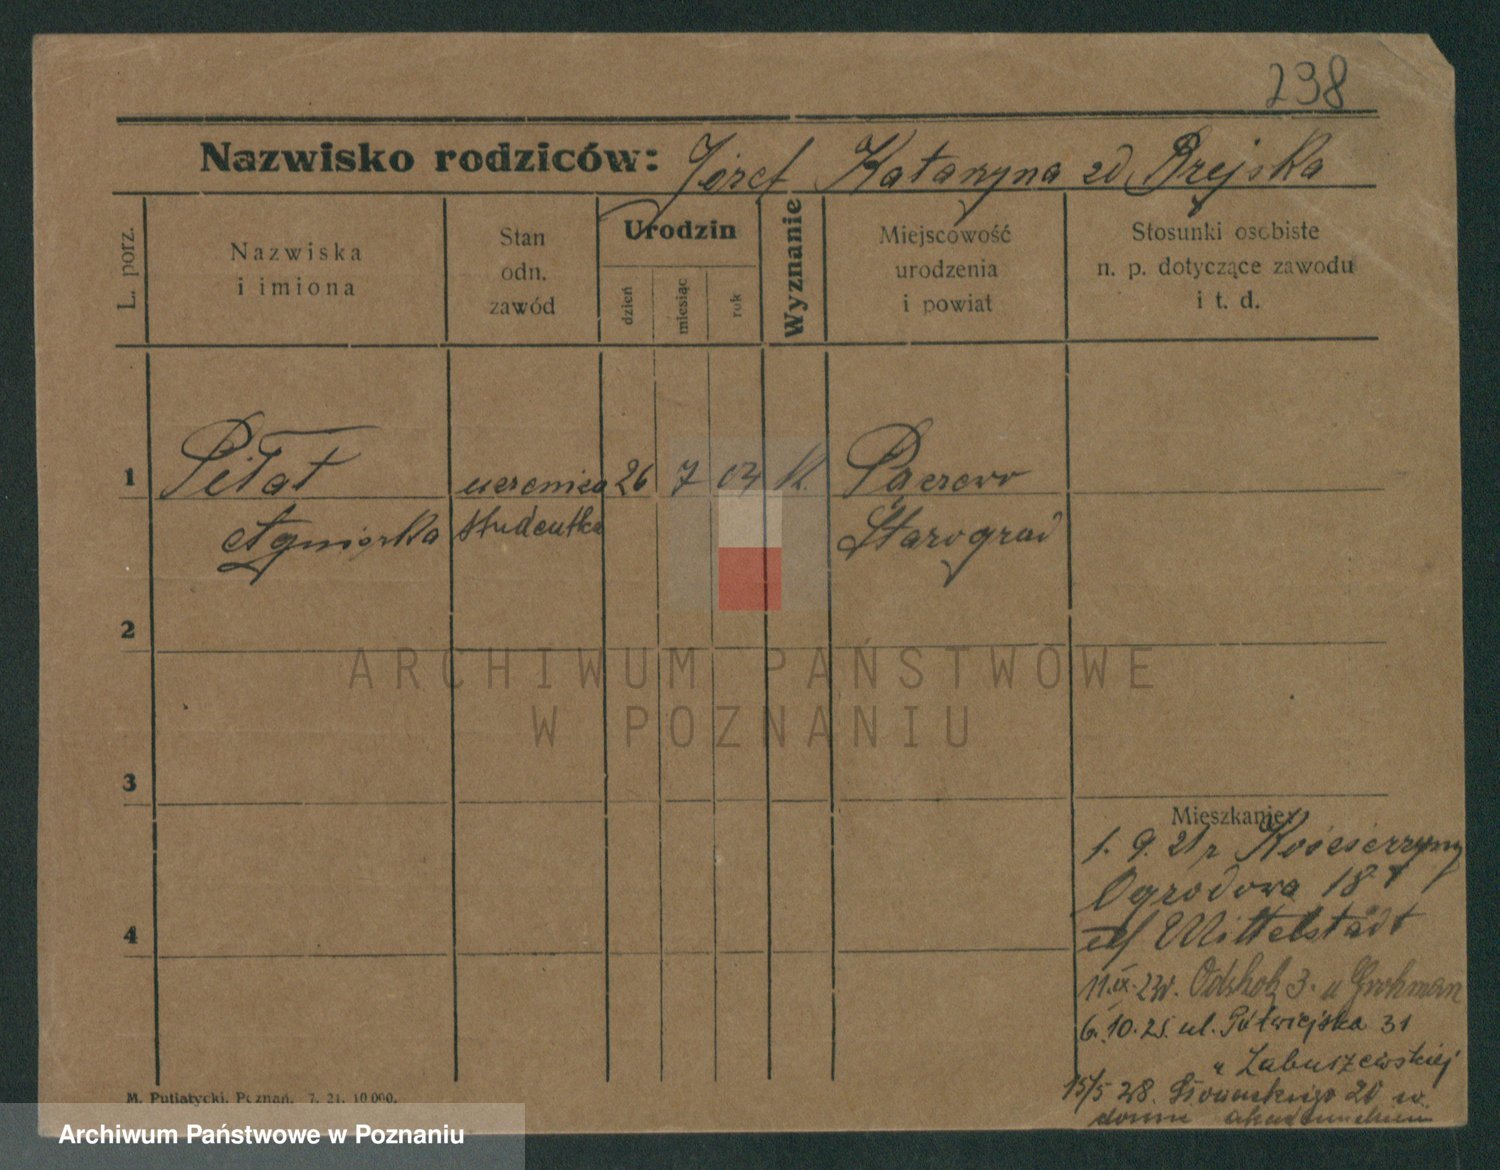 238
Nazwisko rodziców: Józef Katarzyna zd Brejska
L. porz.
Nazwiska
i imiona
Stan
odn.
zawód
Urodzin
dzień
miesiąc
rok
Wyznanie
Miejscowość
urodzenia
i powiat
Stosunki osobiste
n. p. dotyczące zawodu
i t. d.
1 Piłat uczenica 26 7 03 K.
Agnieszka studentka Starogrard
2
3
4
ARCHIWUM PAŃSTWOWE
W POZNANIU
Mieszkanie:
1. 9. 21 z Kościerzyny
Ogrodowa 18
Mittelstädt
11.IX. 3. u Grohman
6.10.25 ul. Półwiejska 31
u Łabuszewskiej
15/5 28. Słowackiego 20 w
domu akademickiem
M. Putiatycki, Poznań. 7. 21. 10 000.
Archiwum Państwowe w Poznaniu